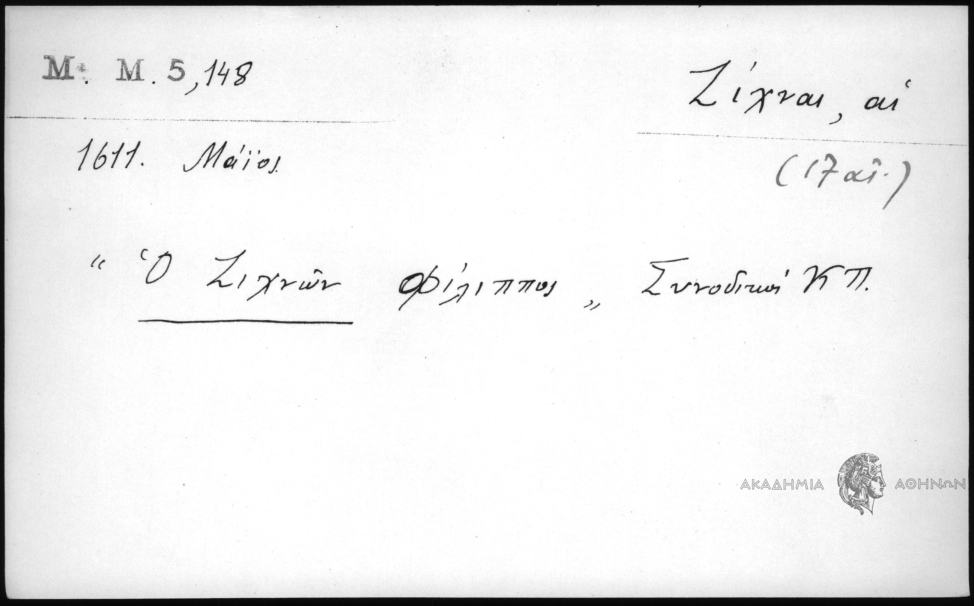 Μ. Μ. 5, 148
Ζίχναι, αἱ
1611. Μάϊος.
(17 αἰ.)
“ Ὁ Ζιχνῶν Φίλιππος „ Συνοδικοί ΚΠ.
ΑΚΑΔΗΜΙΑ ΑΘΗΝΩΝ